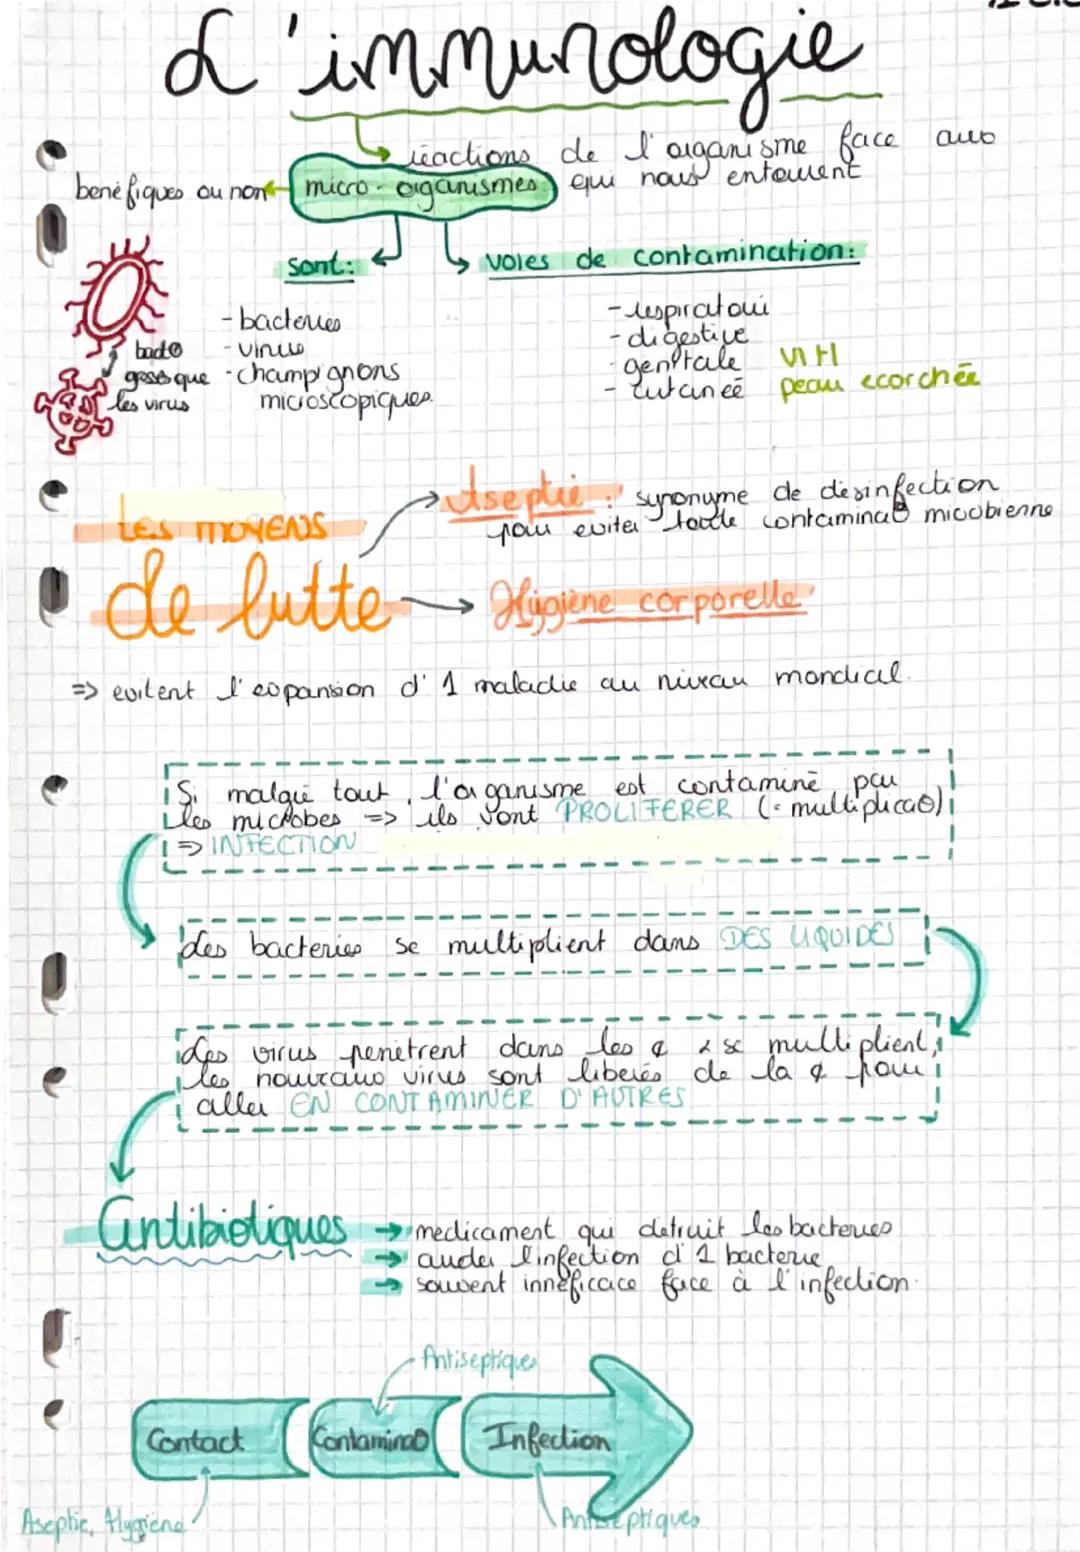 L'immunologie
réactions de l'organisme face aux
micro-organismes qui nous entourent
benéfiques ou non
sont:
voies de contamination:
- bacteries
- virus
- champignons
microscopiques
bact⊕
gosse que
les virus
- respiratoui
- digestive
- genitale VIH
- cutaneé peau ecorchée
Les moyens
de lutte
Aseptie : synonyme de desinfection
pour eviter toute contaminat⊕ micobienne
Hygiène corporelle
=> evitent l'expansion d'1 maladie au niveau mondial.
Si malgré tout, l'organisme est contaminé par
les microbes => ils vont PROLIFERER (= multiplicat⊕)
=> INFECTION
Les bacteries se multiplient dans DES LIQUIDES
Les virus penetrent dans les ¢ & se multiplient,
les nouveaux virus sont liberés de la ¢ pour
aller EN CONTAMINER D'AUTRES
Antibiotiques
→ medicament qui detruit les bacteries
→ auder l'infection d'1 bacterie
→ souvent inneficace face à l'infection.
Antiseptiques
Contact
Contaminat⊕
Infection
Aseptie, Hygiène
Antiseptiques